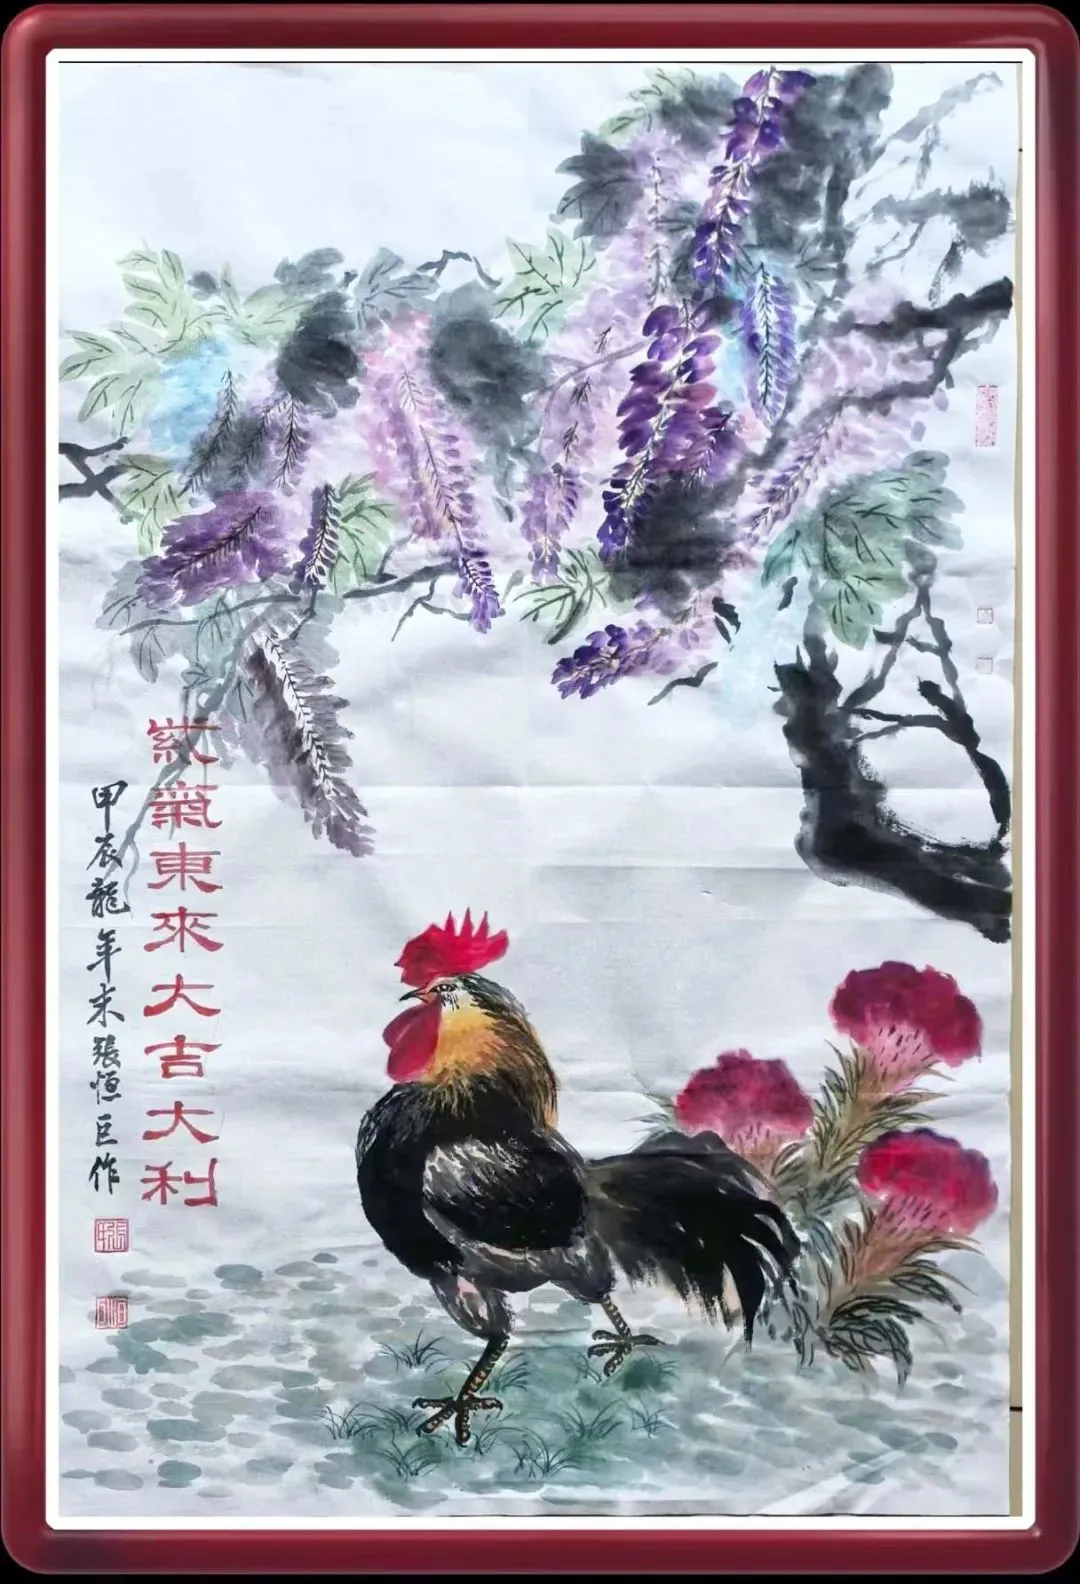 紫氣東來大吉大利
甲辰龍年末張恒巨作